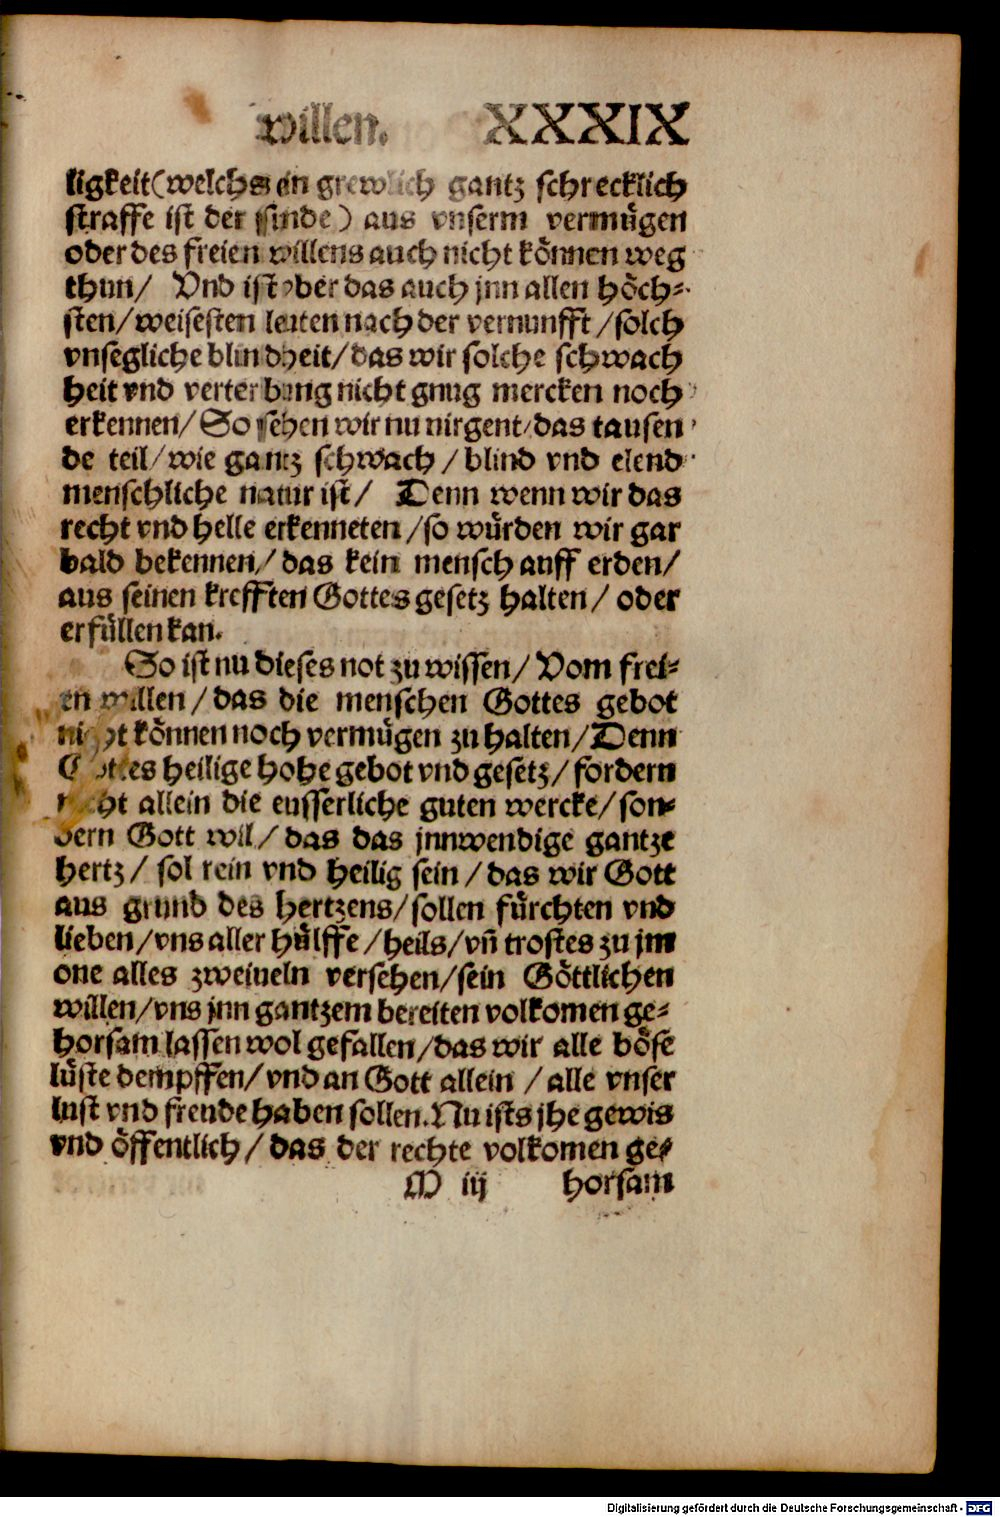 willen. XXXIX
ligkeit (welchs ein grewlich gantz schrecklich
straffe ist der sunde) aus vnserm vermügen
oder des freien willens auch nicht können weg
thun/ Vnd ist vber das auch jnn allen höch⸗
sten/weisesten leuten nach der vernunfft/solch
vnsegliche blindheit/das wir solche schwach
heit vnd verterbung nicht gnug mercken noch
erkennen/ So sehen wir nu nirgent/das tausen
de teil/wie gantz schwach/blind vnd elend
menschliche natur ist/ Denn wenn wir das
recht vnd helle erkenneten/so würden wir gar
bald bekennen/das kein mensch auff erden/
aus seinen krefften Gottes gesetz halten/ oder
erfüllen kan.
So ist nu dieses not zu wissen/ Vom frei⸗
en willen/das die menschen Gottes gebot
nicht können noch vermügen zu halten/Denn
Gottes heilige hohe gebot vnd gesetz/fordern
nicht allein die eusserliche guten wercke/son⸗
dern Gott wil/das das jnnwendige gantze
hertz/ sol rein vnd heilig sein/das wir Gott
aus grund des hertzens/sollen fürchten vnd
lieben/vns aller hülffe/heils/vn̄ trostes zu jm
one alles zweiueln versehen/sein Göttlichen
willen/vns jnn gantzem bereiten volkomen ge⸗
horsam lassen wol gefallen/das wir alle böse
lüste dempffen/vnd an Gott allein/alle vnser
lust vnd freude haben sollen. Nu ists jhe gewis
vnd öffentlich/das der rechte volkomen ge⸗
M iij horsam
Digitalisierung gefördert durch die Deutsche Forschungsgemeinschaft - DFG